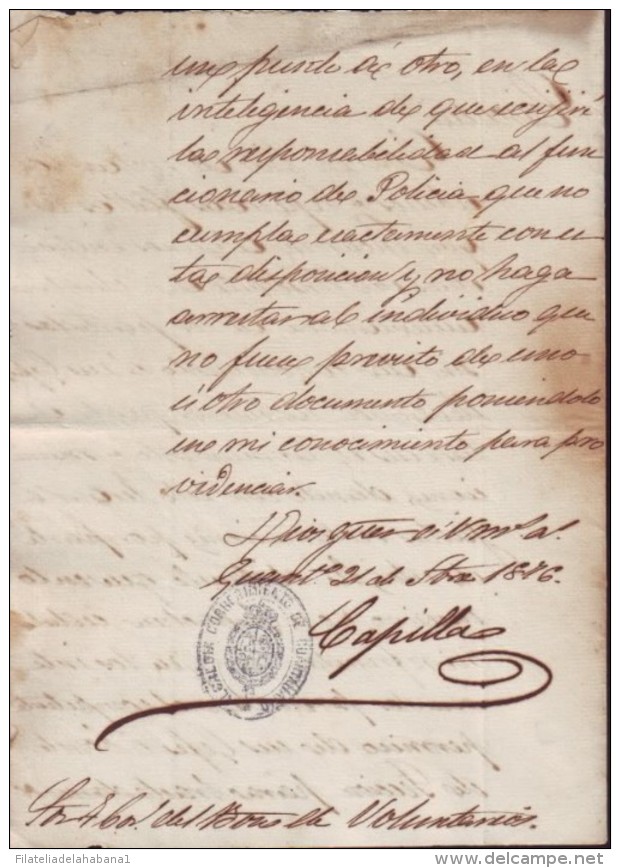 un punto á otro, en la
inteligencia de que exijiré
la responsabilidad al fun-
cionario de Policia que no
cumpla exactamente con es-
ta disposicion y no haga
arrestar al individuo que
no fuere provisto de uno
ú otro documento poniendolo
en mi conocimiento para pro
videnciar.
Dios gue á V. ms. as.
21 de 1876.
Capilla
ALCALDIA CORREGIMIENTO DE GUANTANAMO
Sor Cor. del Bon. de Voluntarios.
Filateliadelahabana1
delcampe.net